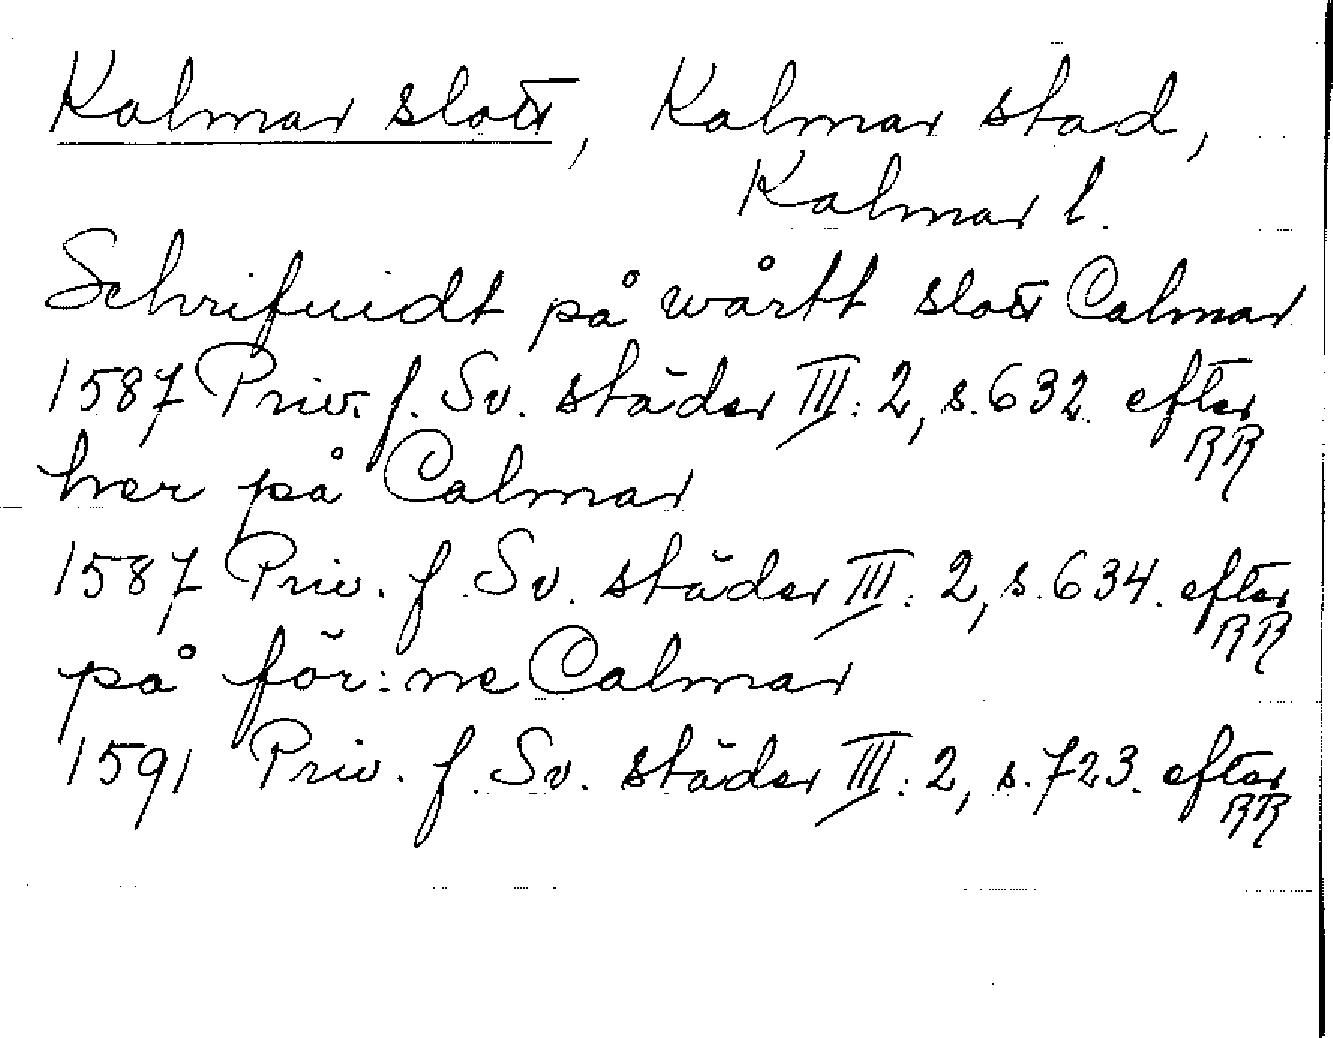 Kalmar slott, Kalmar stad,
Kalmar l.
Schrifuidt på wårtt slott Calmar
1587 Priv. f. Sv. städer III: 2, s. 632. efter RR
her på Calmar
1587 Priv. f. Sv. städer III: 2, s. 634. efter RR
på för:ne Calmar
1591 Priv. f. Sv. städer III: 2, s. 723. efter RR